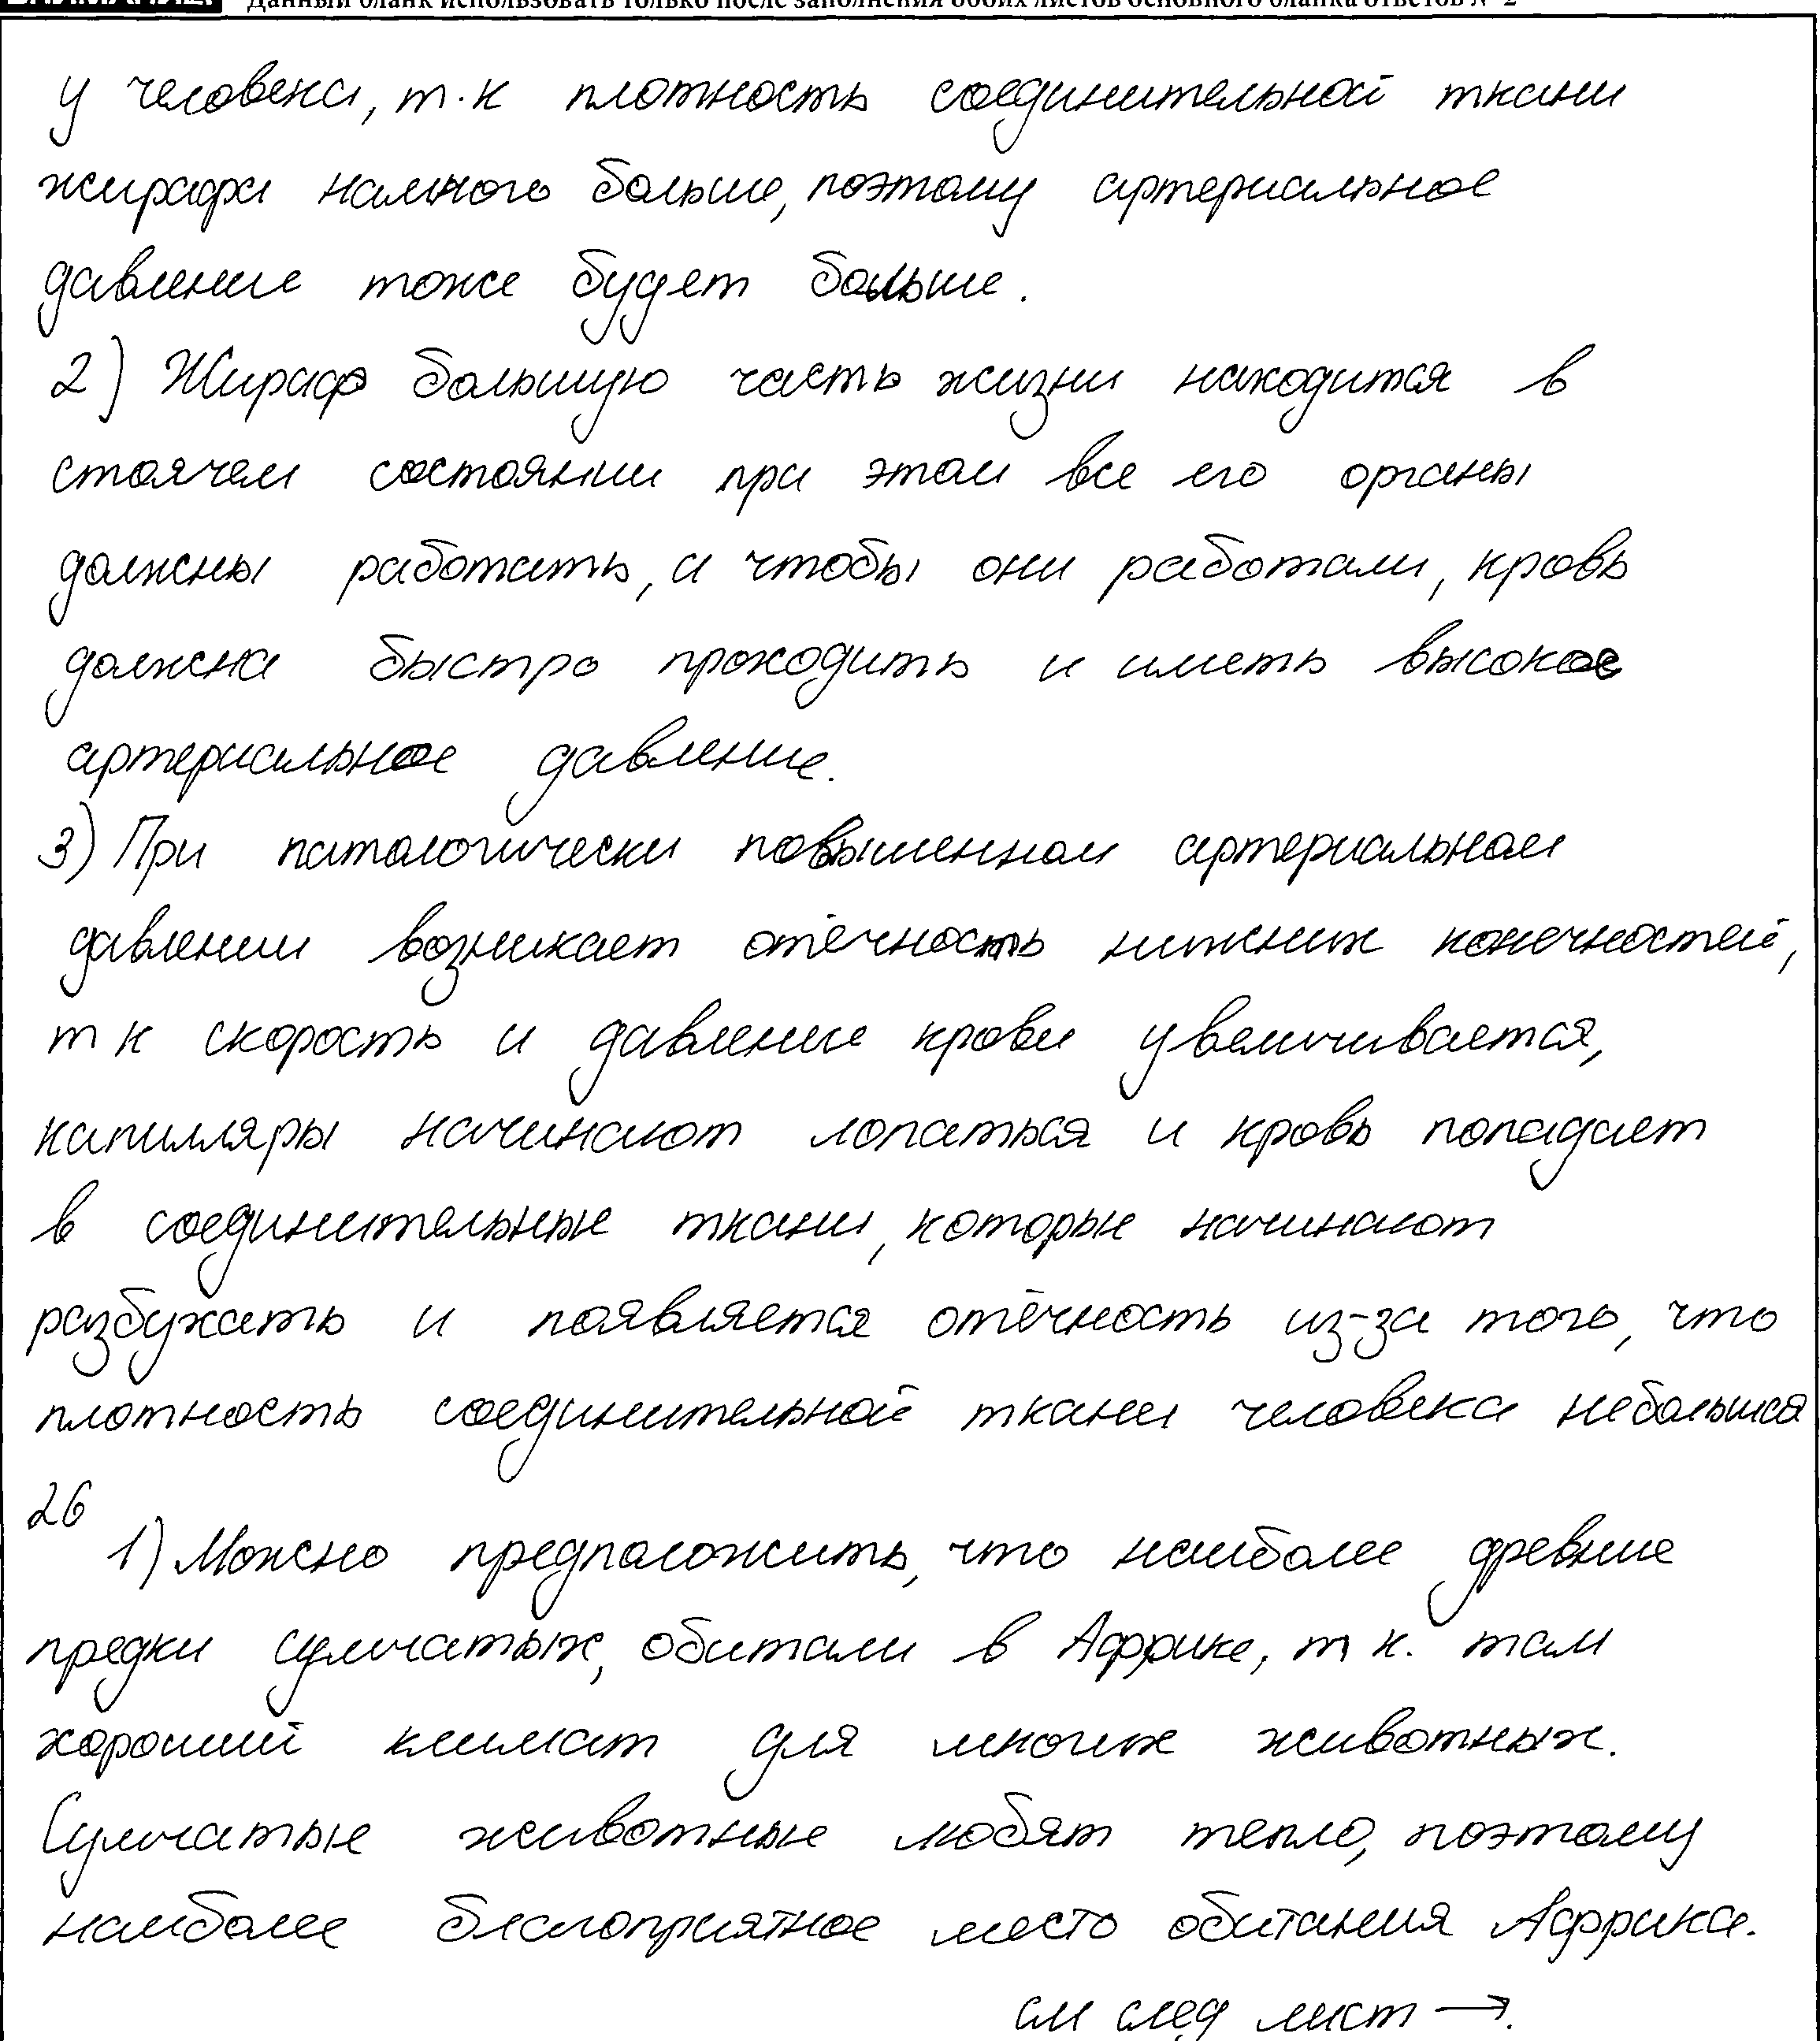 Данный бланк использовать только после заполнения обоих листов основного бланка ответов № 2
у человека, т.к плотность соединительной ткани
жирафа намного больше, поэтому артериальное
давление тоже будет больше.
2) Жираф большую часть жизни находится в
стоячем состоянии при этом все его органы
должны работать, а чтобы они работали, кровь
должна быстро проходить и иметь высокое
артериальное давление.
3) При патологически повышенном артериальном
давлении возникает отёчность нижних конечностей,
т к скорость и давление крови увеличивается,
капилляры начинают лопаться и кровь попадает
в соединительные ткани, которые начинают
разбухать и появляется отёчность из-за того, что
плотность соединительной ткани человека небольшая
26
1) Можно предположить, что наиболее древние
предки сумчатых, обитали в Африке, т к. там
хороший климат для многих животных.
Сумчатые животные любят тепло, поэтому
наиболее благоприятное место обитания Африка.
см след лист →.